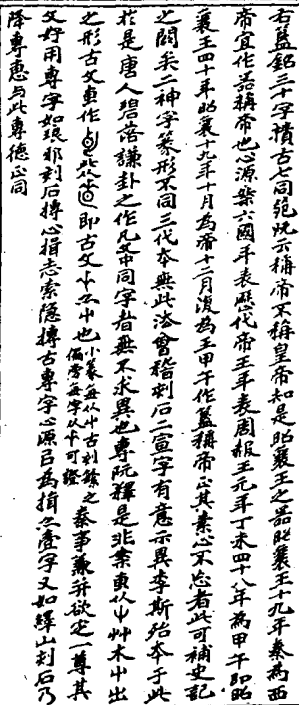 右簋銘三十字積古七同範氏云稱帝不稱皇帝知是昭襄王之器昭襄王十九年秦為西
帝宜作器稱帝也心源案六國年表歷代帝王年表周赧王元年丁未四十八年為甲午即昭
襄王四十年昭襄十九年十月為帝十二月復為王甲午作簋稱帝正其素心不忘者此可補史記
之闕矣二神字篆形不同三代本無此法會稽刻石二宣字有意示異李斯殆本于此
於是唐人碧落謙卦之作凡文中同字者無不求異也專阮釋是非案叀从屮艸木中出
之形古文叀作 此从 即古文屮亦中也小篆每从中古刻條之偏旁每字从中可證秦事兼并欲定一尊其
文好用專字如琅邪刻石摶心揖志索隱摶古專字心源㠯為揖亦壹字又如繹山刻石乃
降專惠与此專德正同